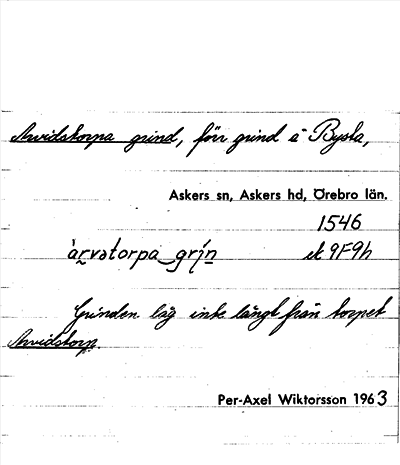 Arvidstorpa grind, förr grind å Bysta,
Askers sn, Askers hd, Örebro län.
1546
ek 9F9h
Grinden låg inte långt från torpet
Arvidstorp.
Per-Axel Wiktorsson 1963